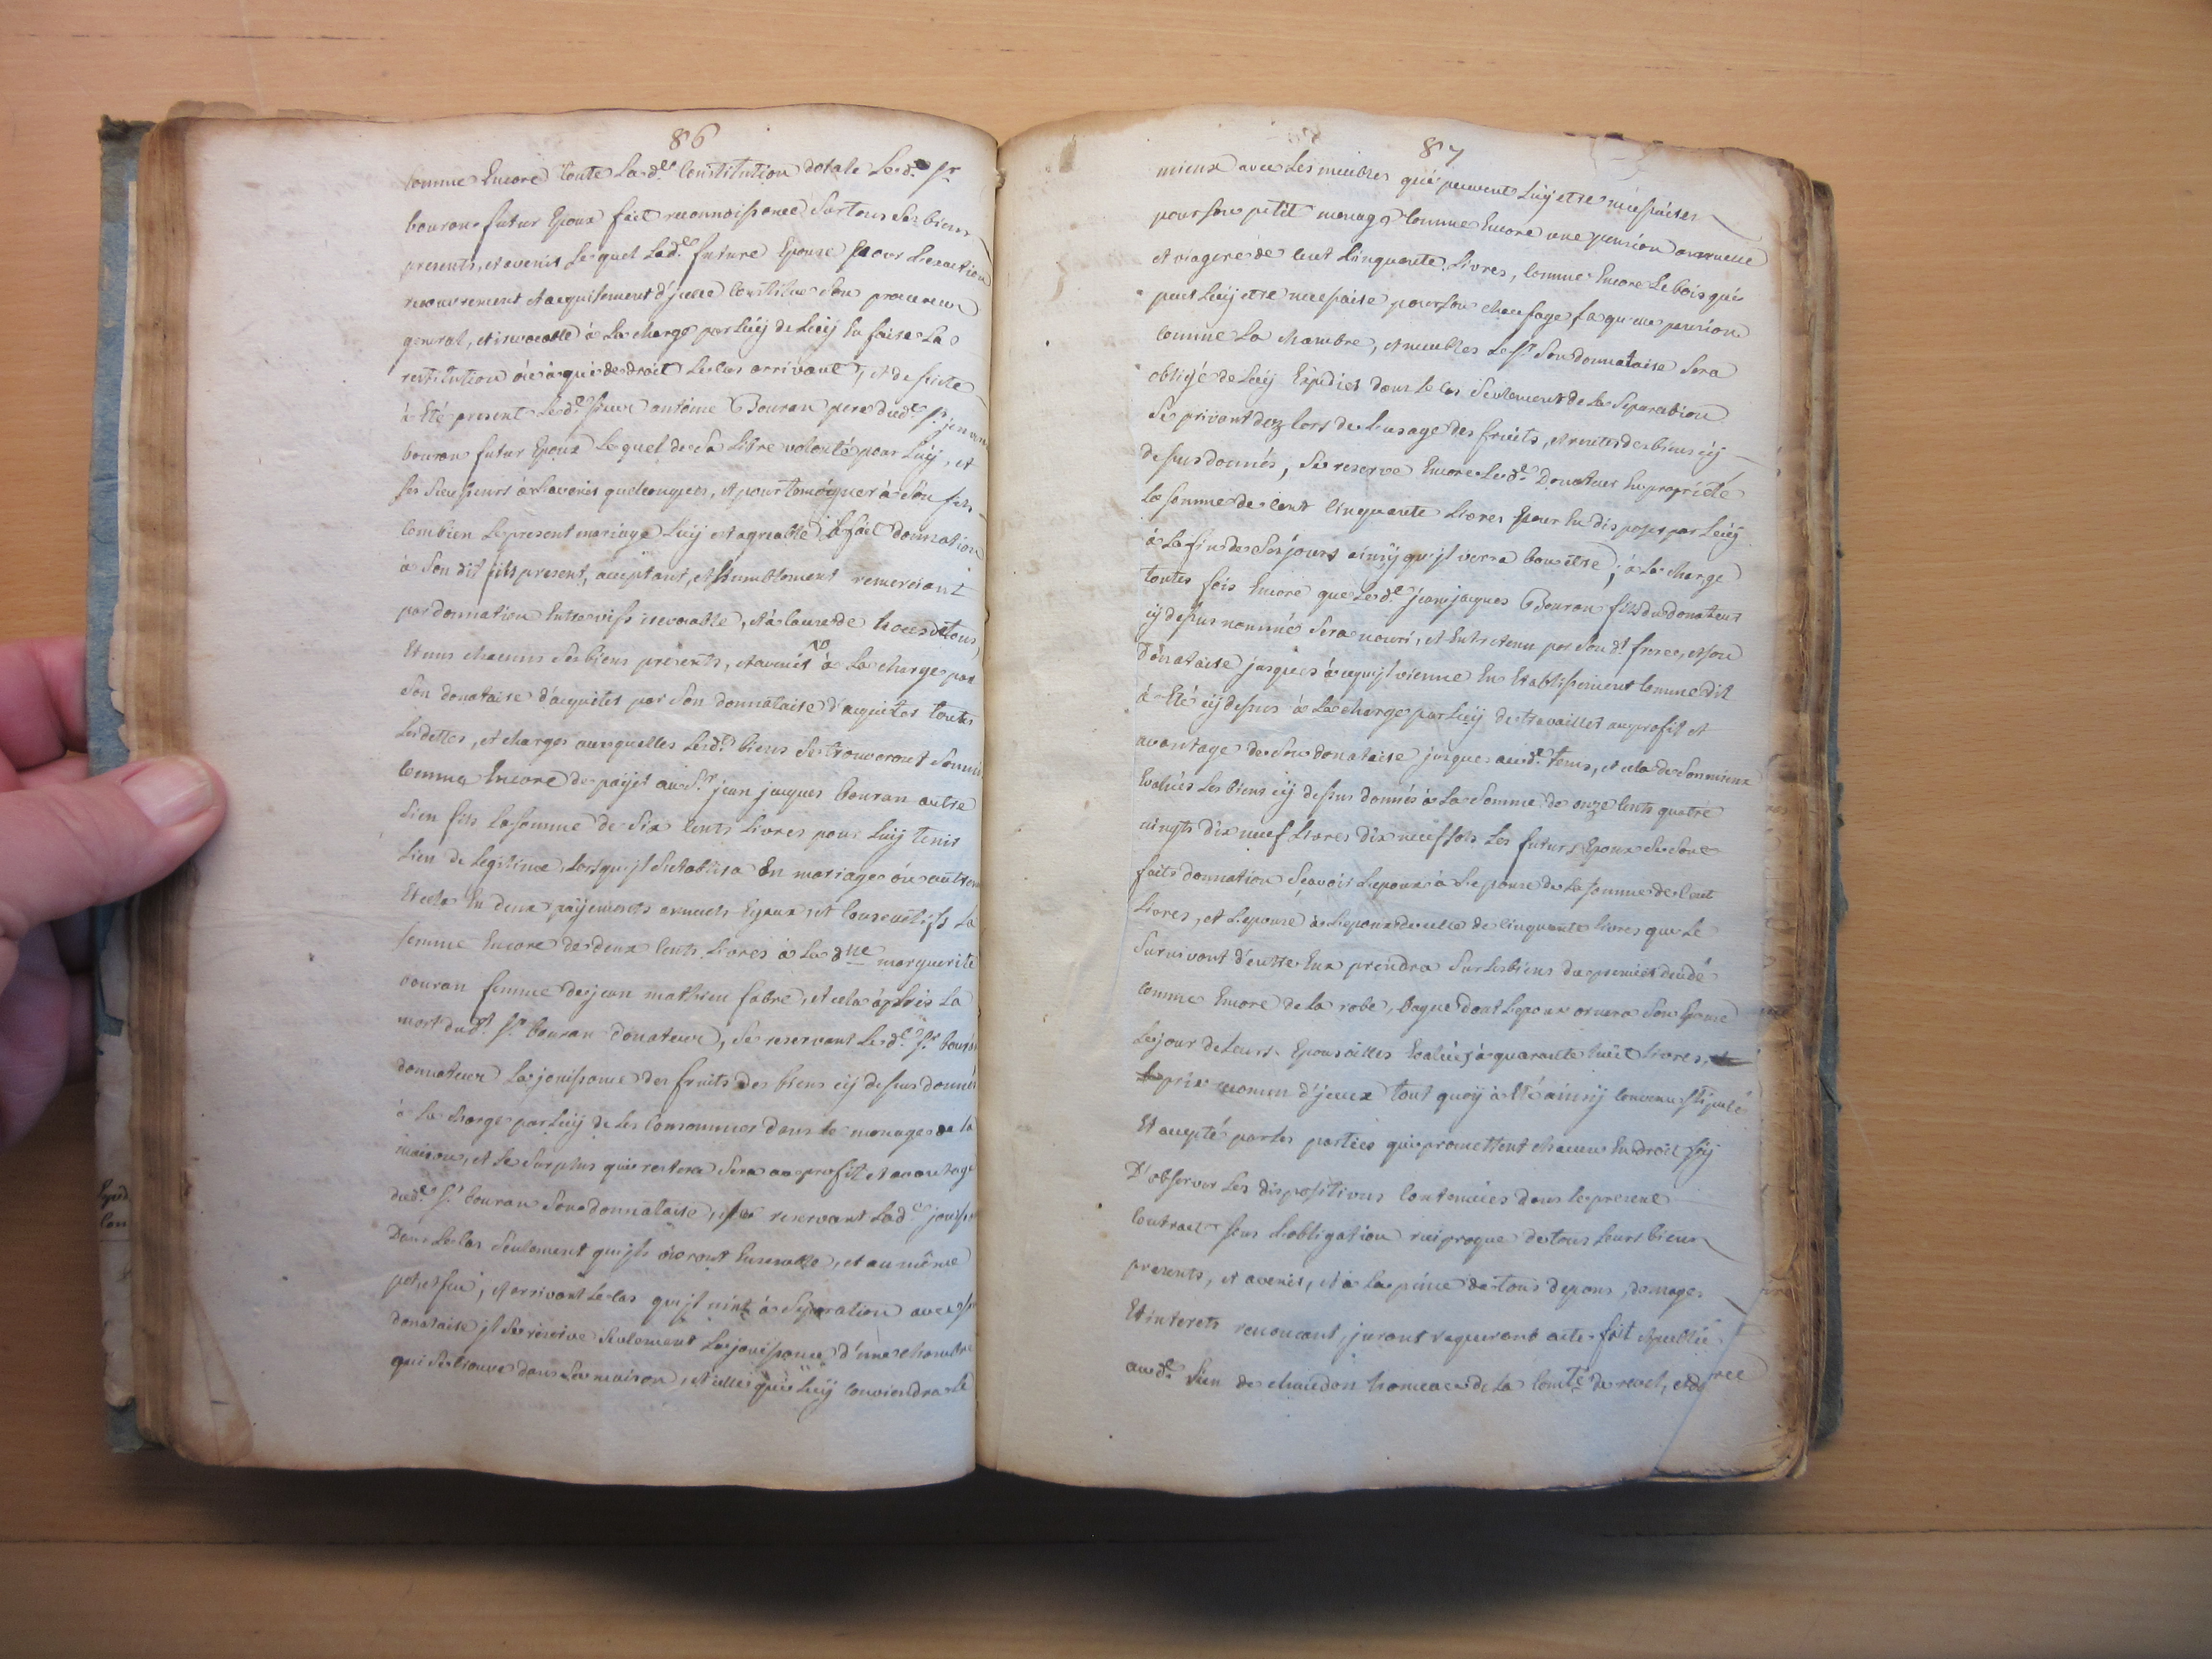 86
comme Encore toute La d.e Constitution dotale Led. Sr
bouran futur Epoux fait reconnoissance Sur tous Ses biens
presents, et avenir Lequel Lad.e future Epouse pour Lexaction
recouvrement et acquisement d'jcelle Constitue Son procureur
general, et irrevocable à La charge par Luÿ de Luÿ En faire La
restitution où à qui de droit Le cas arrivant, et de suitte
à Eté present Led.e Sieur antoine Bouran pere dud.e Sr jean
bouran futur Epoux Lequel de Sa Libre volonté pour Luÿ, et
Ses Successeurs à Lavenir quelconques, et pour temoigner à Son fils
Combien Le present mariage Luÿ et agreable il fait donnation
à Son dit fils present, acceptant, et humblement remerciant
par donnation Entre vifs irrevocable, et à cause de Noces de tous
Et uns chacuns Ses biens presents, et avenir à La charge par
Son donataire d'acquiter par Son donnataire d'acquiter toutes
Les dettes, et charges auxquelles Lesd. biens Se trouveront Soumis
Comme Encore de paÿer au S.r jean jacques bouran autre
Sien fils La somme de Six Cents Livres pour Luÿ tenir
Lieu de Legitime, Lorsqu'jl Setablira En mariage où autrem
Et cela En deux paÿements annuels Egaux, et Consecutifs La
somme Encore de deux Cents Livres à La dlle marguerite
bouran femme de jean mathieu fabre, et cela après La
mort dud. Sr bouran donateur, Se reservant Led.e Sr bouran
donnateur La jouissance des fruits des biens cÿ dessus donnés
à La charge par Luÿ de Les Consommer dans Le menage de La
maison, et Le Surplus qui restera Sera au profit et avantage
dud.e Sr bouran Son donnataire, Se reservant Lad.e jouiss
Dans Le cas Seulement qu'jls vivront Ensemble, et au même
pot, et feu, et arrivant Le cas qu'jl vint à Separation avec Son
donataire jl Se reserve Seulement La jouissance d'une chambre
qui Se trouve dans La maison, et celle qui Luÿ Conviendra Le
87
mieux avec Les meubles qui peuvent Luÿ etre necessaires
pour Son petit menage Comme Encore une pension annuelle
et viagere de Cent Cinquante Livres, Comme Encore Le bois qui
peut Luÿ etre necessaire pour Son chaufage, La quelle pension
Comme La chambre, et meubles Led. Son donnataire Sera
obligé de Luÿ Expedier dans Le Cas Seulement de La Separation
Se privant dez Lors de Lusage des fruits, et rentes des biens cÿ
dessus donnés, Se reserve Encore Led.e Donateur En proprieté
La Somme de Cent Cinquante Livres pour En disposer par Luÿ
à La fin de Ses jours ainsÿ qu'jl verra bon être; à La charge
toutes fois Encore que Led.e jean jacques Bouran fils du donateur
cÿ dessus nommé Sera nourri, et Entretenu par Son d. frere, et Son
Donataire jusques à ce qu'jl vienne En Etablissement Comme dit
à Eté cÿ dessus à La charge par Luÿ de travailler au profit et
avantage de Son donataire jusques aud.e tems, et cela de Son mieux
Evalués Les biens cÿ dessus donnés à La Somme de onze Cents quatre
vingts dix neuf Livres dix neuf Sols Les futurs Epoux Se Sont
faits donnation Sçavoir Lepoux à Lepouse de La Somme de Cent
Livres, et Lepouse à Lepoux de celle de Cinquante Livres que Le
Survivant d'entre Eux prendra Sur Les biens du premier decedé
comme Encore de La robe, bague dont Lepoux ornera Son Epouse
Le jour de Leurs Epousailles Evalués à quarante huit Livres,
prix commun d'jceux tout quoÿ à Eté ainsÿ Convenu Stipulé
Et accepté par Les parties qui promettent chacun En droit Soÿ
D'observer Les dispositions Contenues dans Le present
Contract Sous L'obligation reciproque de tous Leurs biens
presents, et avenir, et à La peine de tous depens, damages
Et interets renoncant, jurant requerant acte fait et publié
aud.e Lieu de de La Comté de